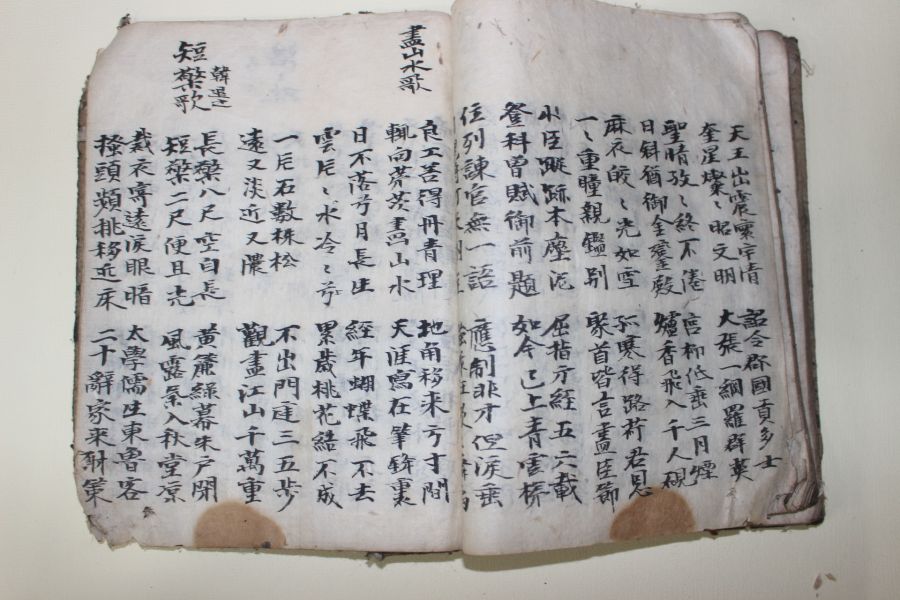 天王出震寰宇清
奎星燦〻昭文明
詔令郡國貢多士
大張一綱羅群英
聖晴孜〻終不倦
日斜猶御金鑾殿
宮柳低垂三月煙
爐香飛入千人硯
麻衣皎〻光如雪
一〻重瞳親鑑別
孤寒得路荷君恩
聚首皆言盡臣節
小臣蹤跡本塵泥
登科曾賦御前題
屈指方経五六載
如今已上青雲梯
位列諫官無一語
應制非才但淚垂
畫山水歌
良工善得丹青理
輒向茅茨畫山水
地角移来方寸間
天涯寫在筆鋒裏
日不落兮月長生
雲片〻水冷〻兮
経年蝴蝶飛不去
累歲桃花結不成
一片石数株松
遠又淡近又濃
不出門庭三五步
觀盡江山千萬重
短檠歌 韓退之
長檠八尺空自長
短檠二尺便且光
黃簾綠幕朱戶閉
風露氣入秋堂凉
裁衣寄遠淚眼暗
搔頭頻挑移近床
太學儒生東魯客
二十辭家来射策